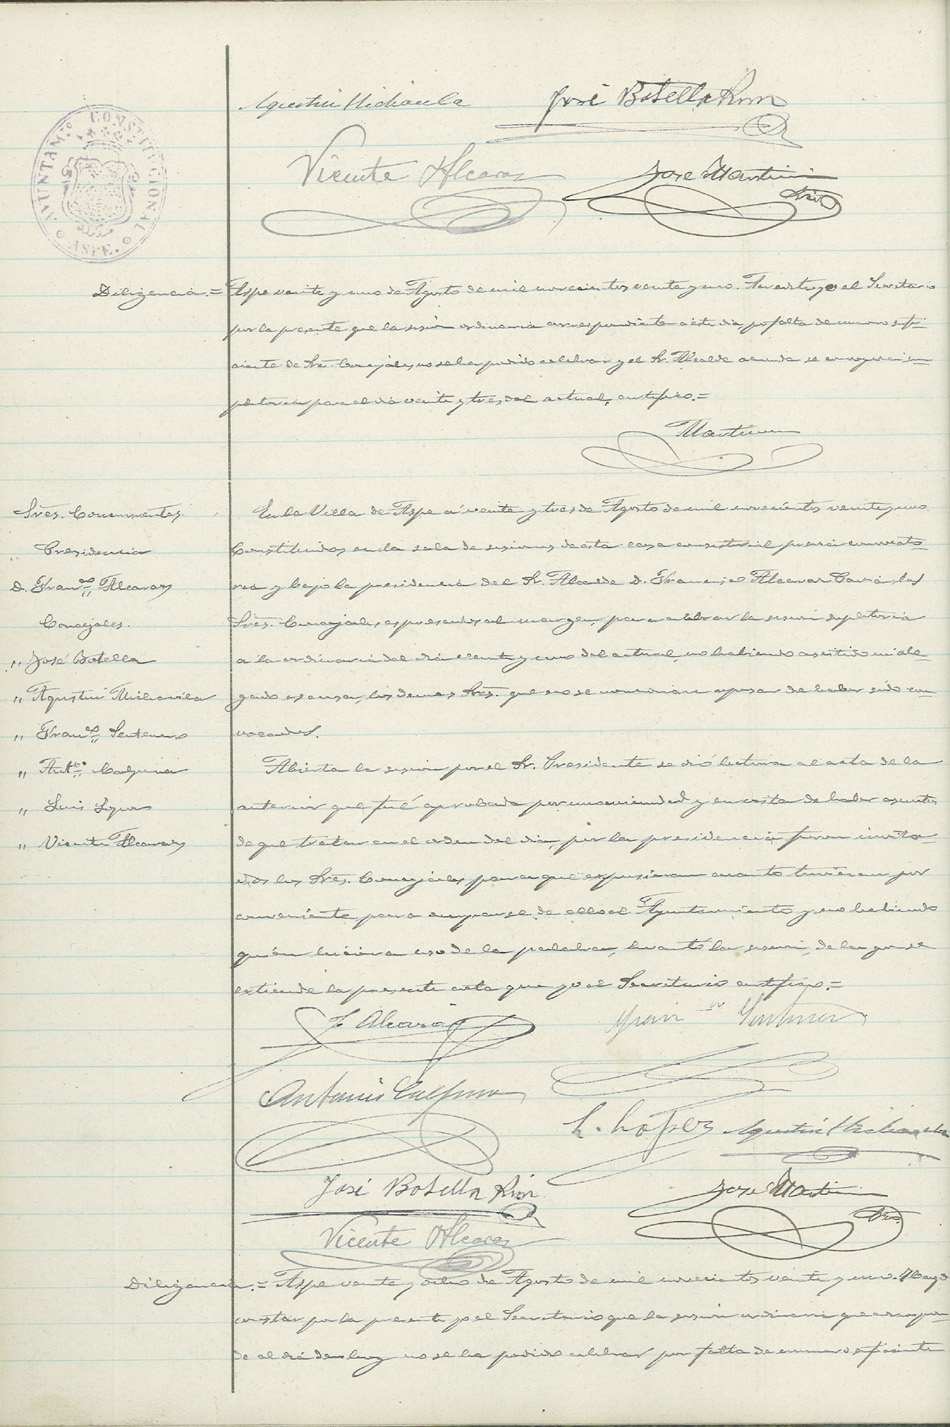 Agustin Michavila José Botella Rira
AYUNTAM.º CONSTITUCIONAL
ASPE.
Vicente Alcaraz José Martin
Srio
Diligencia.= Aspe veinte y uno de Agosto de mil novecientos veinte y uno. Acredito yo el Secretario
por la presente que la sesión ordinaria correspondiente a este dia, por falta de numero sufi-
ciente de Sres. Concejales, no se ha podido celebrar y el Sr. Alcalde acuerda se convoque su-
pletoria para el dia veinte y tres del actual, certifico.=
Martin
Sres. Concurrentes.
Presidencia
D. Fran.co Alcaraz
Concejales.
,, José Botella
,, Agustin Michavila
,, Fran.co
,, Ant.º Calpena
,, Luis Lopez
,, Vicente Alcaraz
En la Villa de Aspe a veinte y tres de Agosto de mil novecientos veinte y uno
Constituidos en la sala de sesiones de esta casa consistorial previa convocato-
ria y bajo la presidencia del Sr. Alcalde D. Francisco Alcaraz los
Sres. Concejales expresados al margen, para celebrar la sesión supletoria
a la ordinaria del dia veinte y uno del actual, no habiendo asistido ni ale-
gado excusa, los demas Sres. que no se mencionan apesar de haber sido con-
vocados.
Abierta la sesión por el Sr. Presidente se dió lectura al acta de la
anterior que fué aprobada por unanimidad y en vista de haber asuntos
de que tratar en el orden del dia, por la presidencia, fueron invita-
dos los Sres. Concejales para que expusieran cuanto tuvieran por
conveniente para ocuparse de ello el Ayuntamiento y no habiendo
quien hiciera uso de la palabra, levantó la sesión, de la que se
extiende la presente acta que yo el Secretario certifico.=
F. Alcaraz
Antonio Calpena
L. Lopez Agustin Michavila
José Botella Rira José Martin
Srio
Vicente Alcaraz
Diligencia.= Aspe veinte y ocho de Agosto de mil novecientos veinte y uno. Hago
constar por la presente yo el Secretario que la sesión ordinaria que correspon-
de al dia de hoy no se ha podido celebrar por falta de numero suficiente